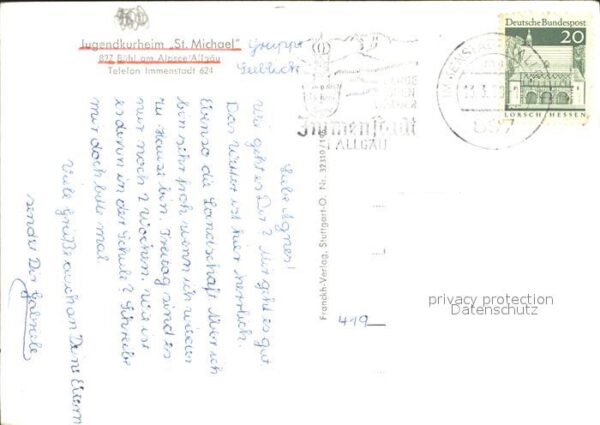 Jugendkurheim „St. Michael"
897 Bühl am Alpsee/Allgäu
Telefon Immenstadt 624
Gruppe
Seeblick
Immenstadt
ALLGÄU
Deutsche Bundespost
20
LORSCH/HESSEN
897
Liebe Agnes!
Wie geht es Dir? Mir geht es gut
Das Wetter ist hier herrlich.
Ebenso die Landschaft. Aber ich
bin sehr froh wenn ich wieder
zu Hause bin. Freitag sind es
nur noch 2 Wochen. Wie ist
es denn in der Schule? Schreibe
mir doch bitte mal.
Viele Grüße auch an Deine Eltern
sendet Dir Gabriele
Franckh-Verlag, Stuttgart-O. Nr. 32310/
419
privacy protection
Datenschutz